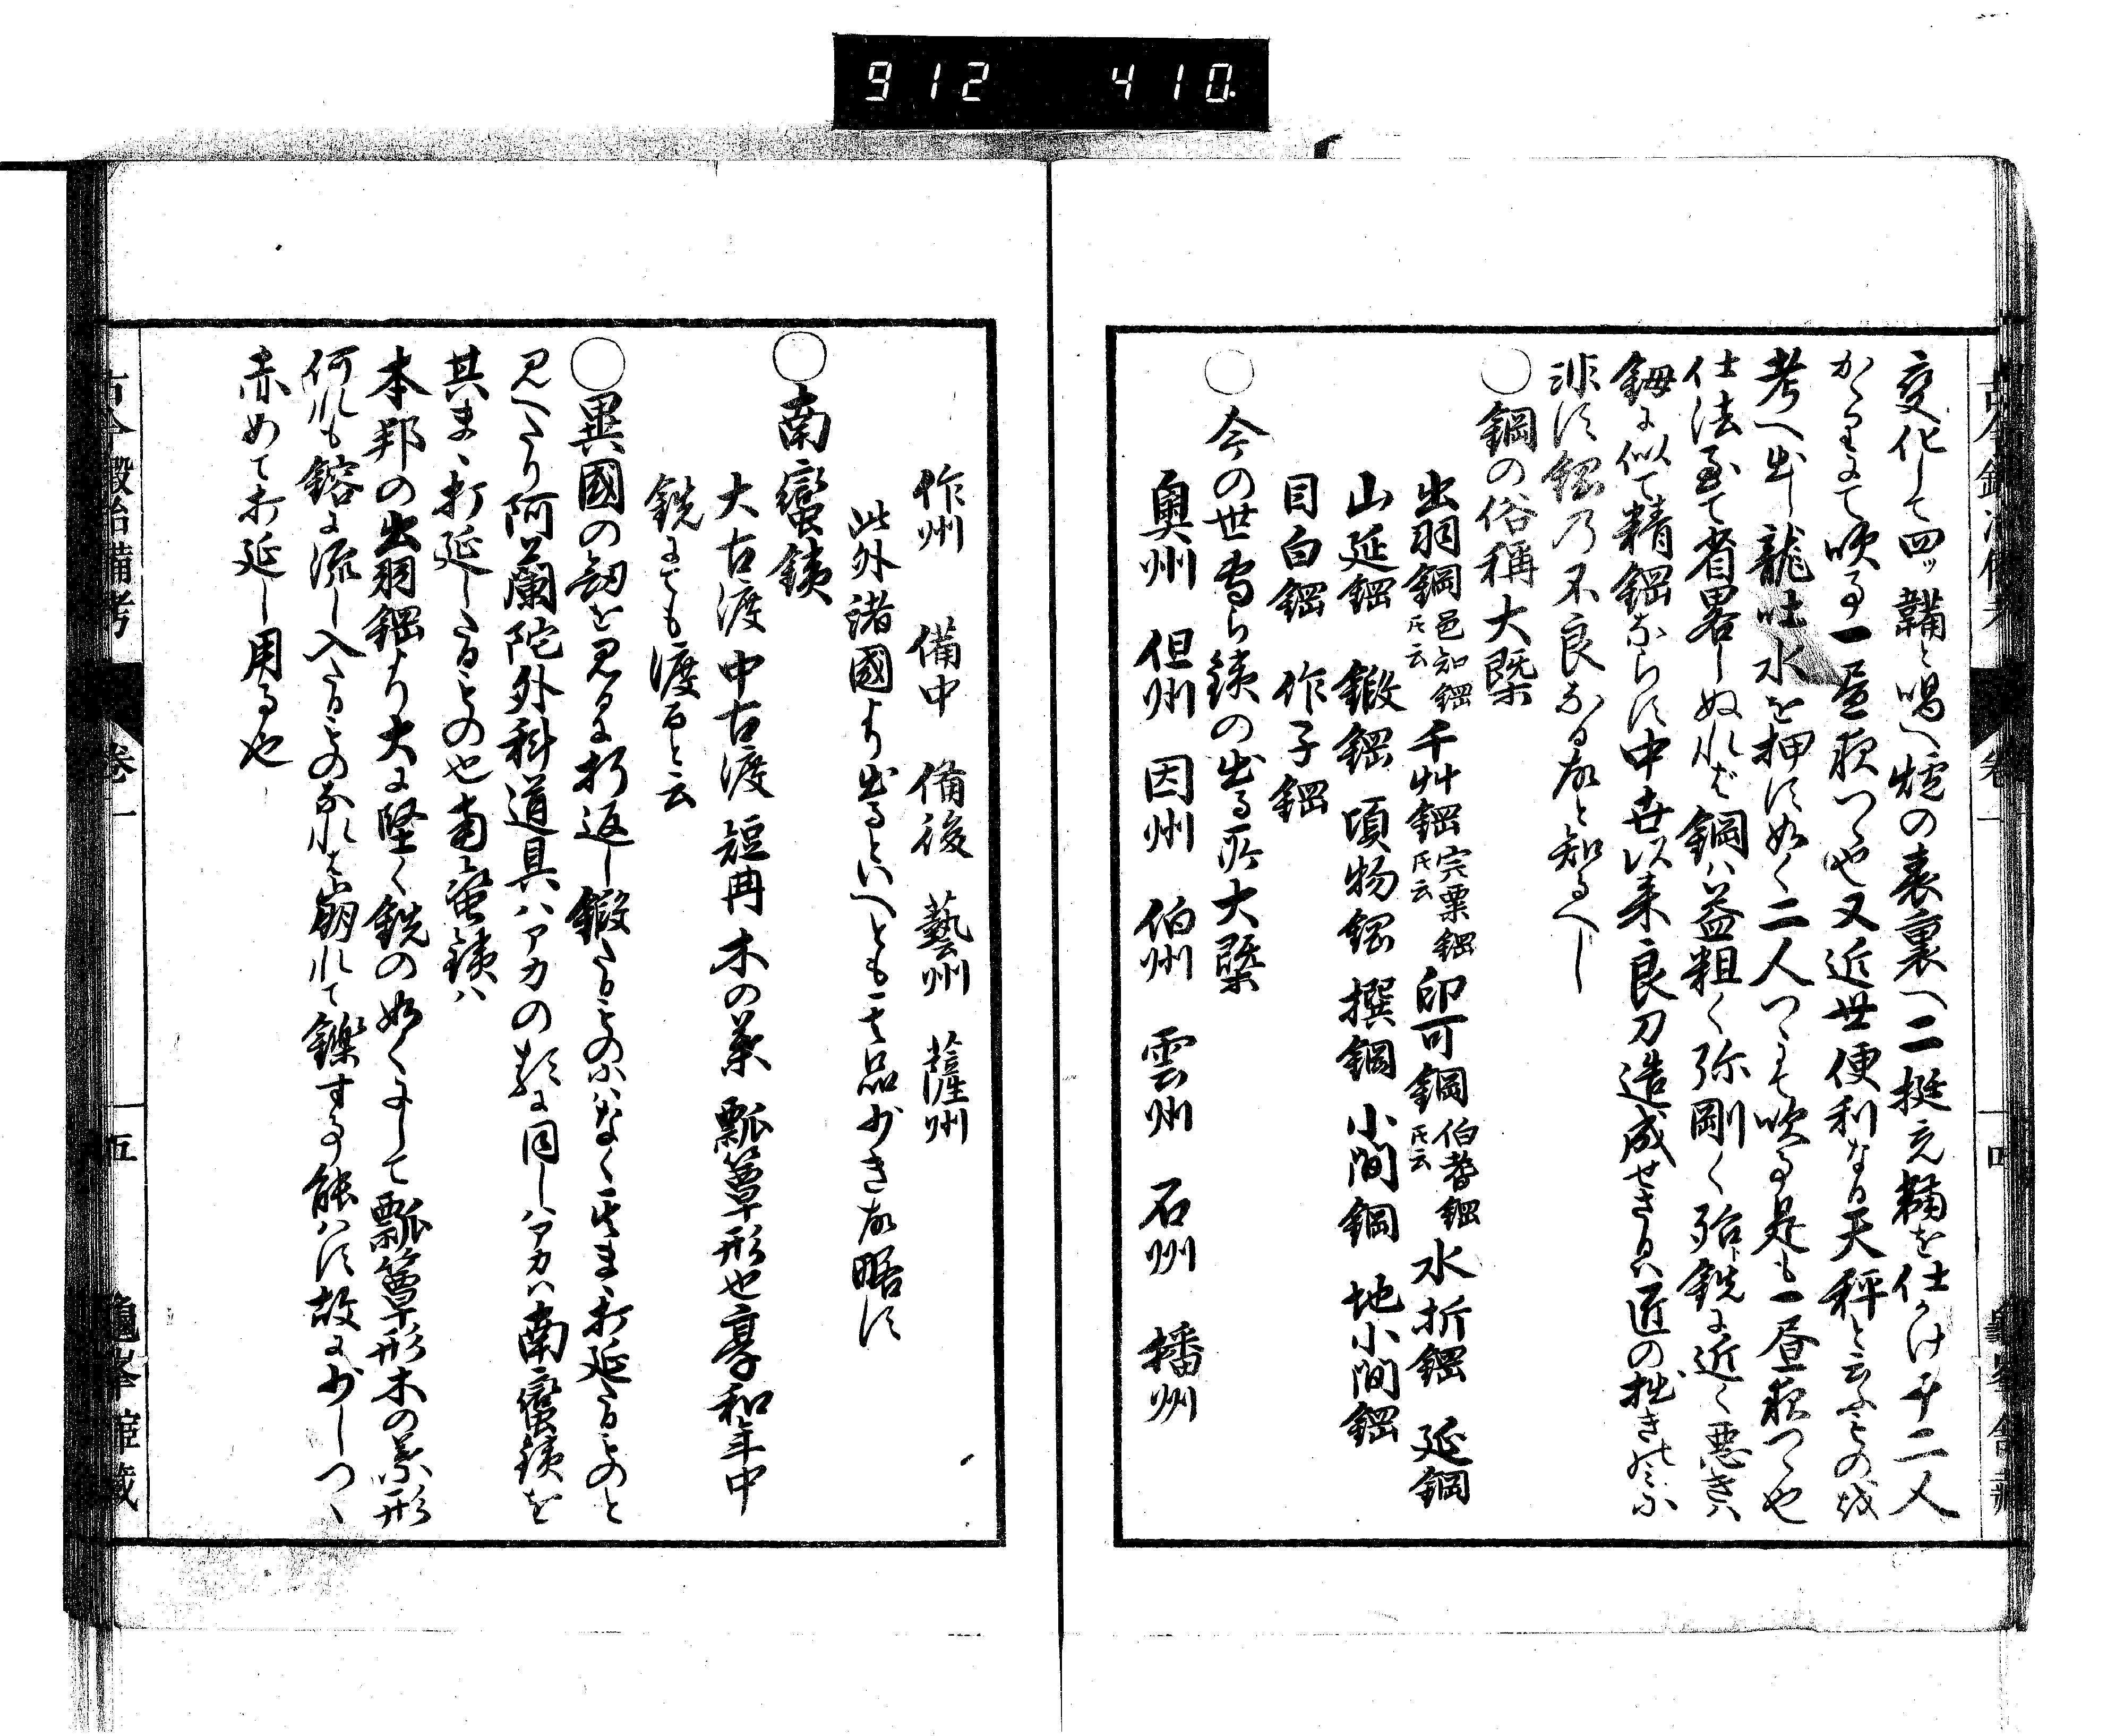 912 410
変化して四ッ鞴と唱へ炉の表裏へ二挺立鞴を仕かけ十二人
かゝりにて吹る事一昼夜つゝ也又近世便利なる天秤と云ふものを
考へ出し龍吐水を押す如く二人つゝにて吹る是も一昼夜つゝ也
仕法至て省畧しぬれど鋼ハ益粗く弥剛く殆銑に近く悪きハ
鉧に似て精鋼ならす中世以来良刀造成せさるハ匠の拙き而已に
非す鋼乃不良なる故と知るへし
○鋼の俗稱大槩
出羽鋼 邑知鋼氏云 千艸鋼 宍粟鋼氏云 印可鋼 伯耆鋼氏云 水折鋼 延鋼
山延鋼 鍛鋼 頃物鋼 撰鋼 小間鋼 地小間鋼
目白鋼 作子鋼
○今の世専ら鉄の出る所大槩
奥州 但州 因州 伯州 雲州 石州 播州
作州 備中 備後 藝州 薩州
此外諸國より出るといへとも其品少き故略す
○南蠻鉄
大古渡 中古渡 短冊 木の葉 瓢簞形也享和年中
銑にても渡ると云
○異國の劔を見るに折返し鍛たるものにハなく其まゝ打延たるものと
見へたり阿蘭陀外科道具ハアカの類に同しハアカハ南蠻鉄を
其まゝ打延したるもの也南蠻鉄ハ
本邦の出羽鋼より大に堅く銑の如くにして瓢簞形木の葉形
何れも鎔に流し入たるものなれは崩れて鑠する事能ハす故に少しつゝ
赤めて打延し用る也
古今鍛冶備考 巻一 五 龜峯館蔵